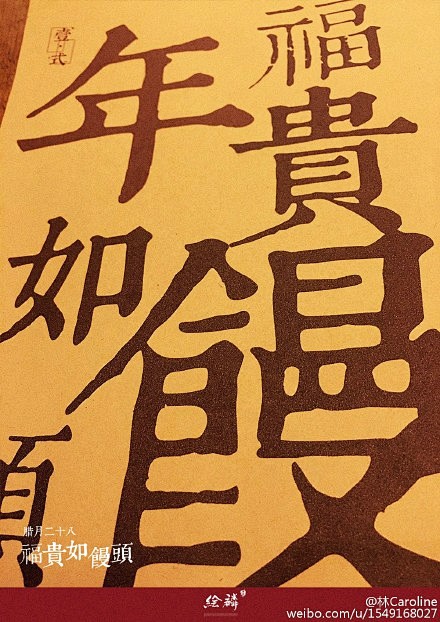 福
貴
年
如
饅
頭
腊月二十八
福貴如饅頭
@林Caroline
weibo.com/u/1549168027